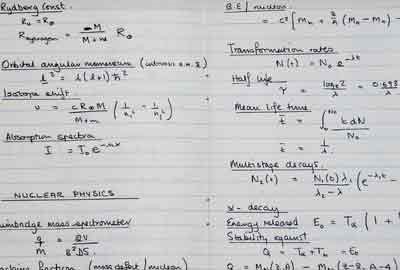 Rydberg const.
R∞ = R∞
R hydrogen = M / M+m R∞
Orbital angular momentum (intrinsic a.m. s)
l² = l(l+1) ħ²
Isotope shift.
ν = cR∞M / M+m (1/n₁² - 1/n₂²)
Absorption spectra
I = I₀ e^-
NUCLEAR PHYSICS
mass spectrometer
q/m = 2V / B²
fraction (mass defect / nucleon)
B.E / nucleon
= c² [ Mn + Z/A (MH - Mn) -
Transformation rates
N(t) = N₀ e^-λt
Half life
τ = loge 2 / λ = 0.693 / λ
Mean life time
t̄ = ∫ tdN / N₀
t̄ = 1/λ
Multistage decays.
N₂(t) = N₁(0) λ₁ / λ₂ - λ₁ (e^-λ₁t -
α - decay
Energy released E₀ = Tα (1 +
Stability against
Q = Tα + Tb = E₀
Q = M (Z,A) - M (Z-2, A-4)